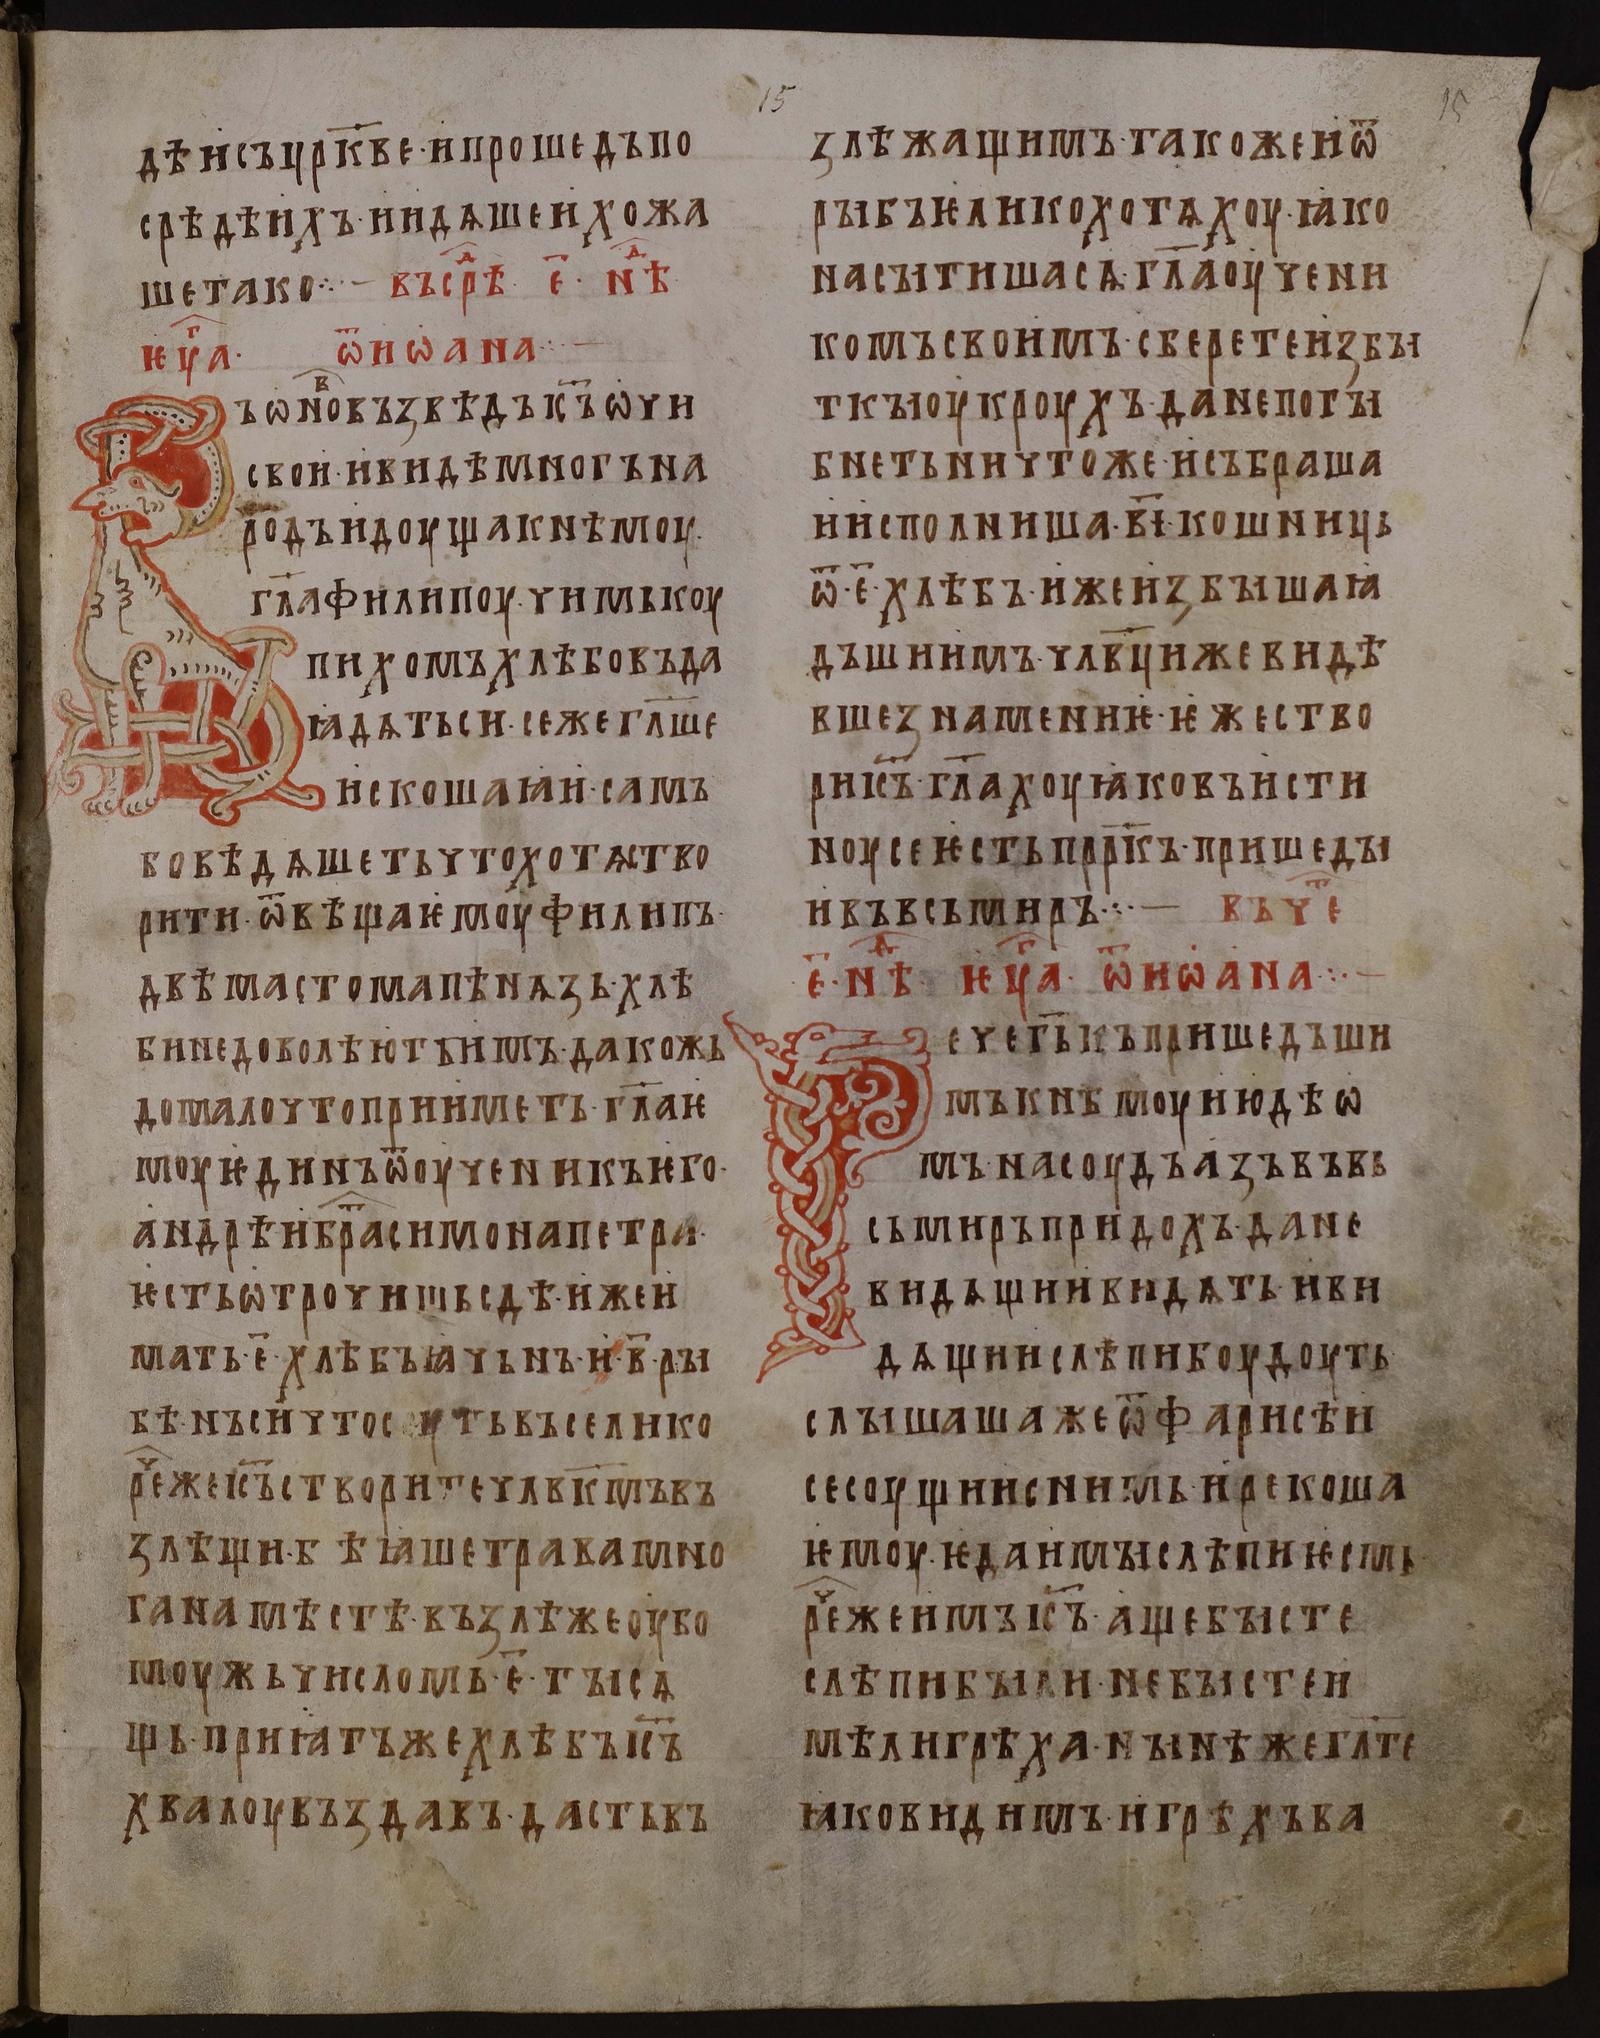 15
15
дѣисъцр҃кве·ипрошедъпо
срѣдѣихъ·иидѧшеихожа
шетако⁘— въсрⷣѣ е҃· нⷣѣ
ѥуⷢ҇а· ѿиѡана⁘—
Въѡноⷡ҇възвѣдъіс҃ъѡчи
свои·ивидѣмногъна
родъидоущакнѣмоу·
гл҃афилипоу·чимькоу
пихомъхлѣбовъда
ꙗдѧтьси·сежегл҃ше
искошаꙗи·самъ
бовѣдѧшетьчтохотѧтво
рити·ѿвѣщаѥмоуфилипъ·
двѣмастомапѣнѧзь·хлѣ
бинедоволѣютьимъ·дакожь
домалочтоприиметь·гл҃аѥ
моуѥдинъѿоученикъѥго·
андрѣибратⷭ҇асимонапетра·
ѥстьѡтрочищьсдѣ·ижеи
мать·е҃·хлѣбъꙗчьнъ·и·в҃·ры
бѣ·нъсичтос утьвъселико
рⷱ҇ежеіс҃ъстворитечл҃вкмъвъ
злѣщи·б ѣꙗшетравамно
ганамѣстѣ·възлѣжеоубо
моужьчисломь·е҃·тысѧ
щь·приꙗтъжехлѣбъіс҃ъ
хвалоувъздавъ·дастьвъ
злѣжащимъ·такожеиѿ
рыбъѥликохотѧхоу·ꙗко
насытишасѧ·гл҃аоучени
комъсвоимъ·сберетеизбы
ткыоукроухъ·данепогы
бнетьничтоже·исъбраша
иисполниша·в҃і·кошниць
ѿ·е҃·хлѣбъ·ижеизбышаꙗ
дъшиимъ·чл҃вцижевидѣ
вшезнамениѥ·ѥжество
риіс҃ъ·гл҃ахоуꙗковъисти
ноусеѥстьпррк҃ъ·пришеды
ивъвсьмиръ⁘— въчⷮе
е҃·нⷣѣ ѥуⷢ҇а· ѿиѡана⁘—
Речегь҃къпришедъши
мъкнѣмоуиюдѣѡ
мъ·насоудъазъвъвь
сьмиръпридохъ·дане
видѧщиивидѧть·иви
дѧщиислѣпибоудоуть
слышашажеѿфарисѣи
сесоущииснимь·ирекоша
ѥмоу·ѥдаимыслѣпиѥсмь
рⷱ҇ежеимъіс҃ъ·ащебысте
слѣпибыли·небыстеи
мѣлигрѣха·нынѣжегл҃те
ꙗковидимъ·игрѣхъва